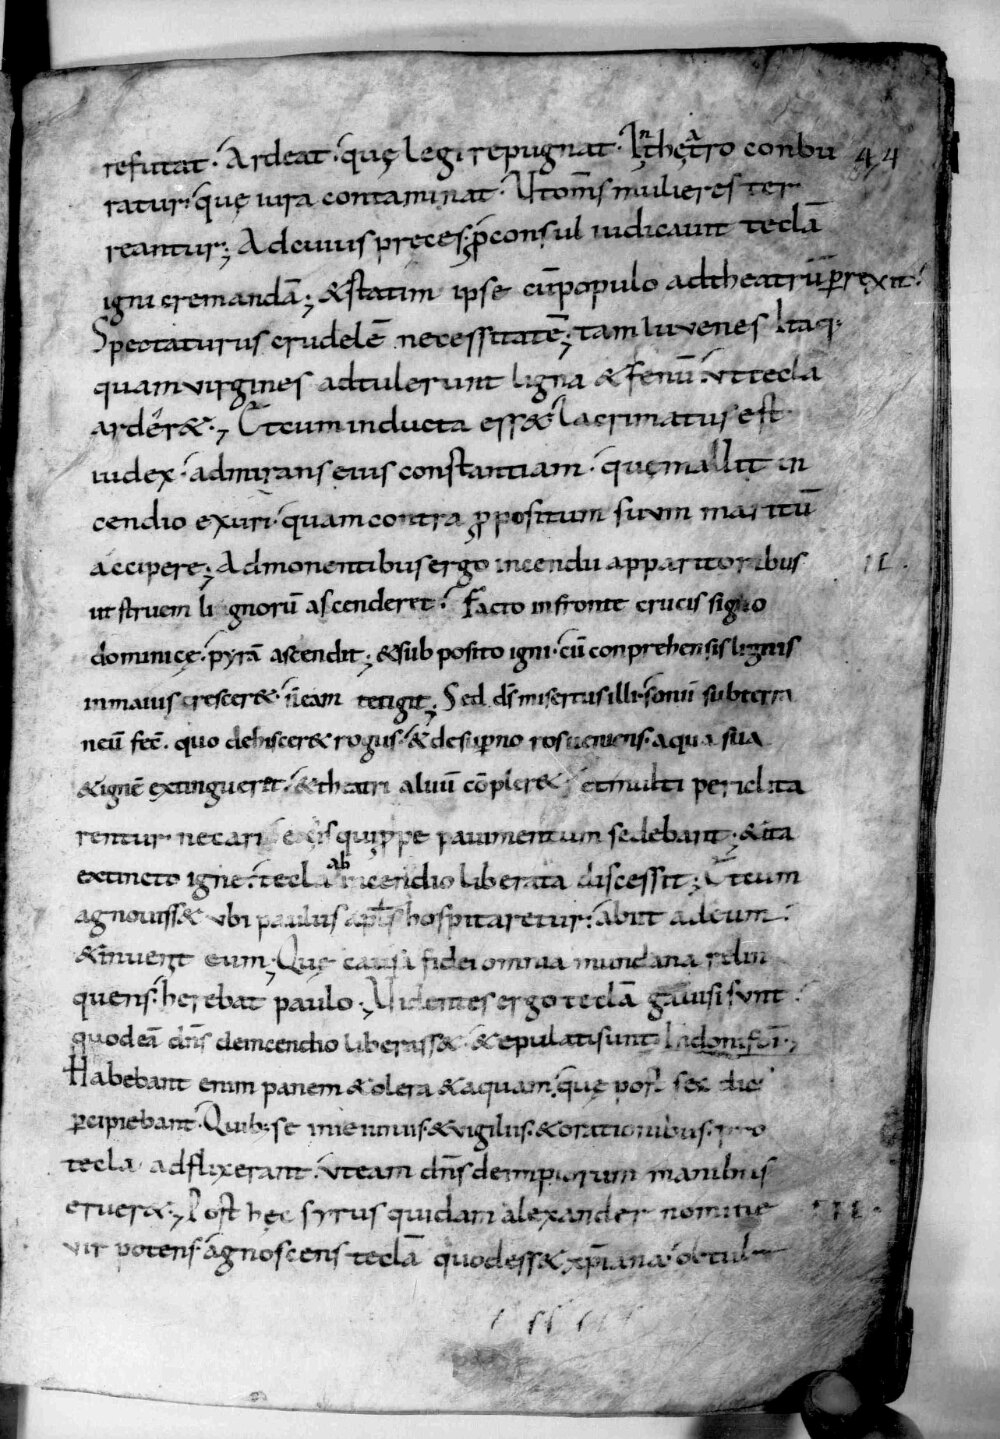 refutat · Ardeat · quę legi repugnat · In thęatro conbu 44
ratur · quę iura contaminat · Ut om̄s mulieres ter
reantur; Ad cuius preces · p̄consul iudicauit teclā
igni cremandā; & statim ipse cū populo ad theatrū perrexit ·
Spectaturus crudelē necessitatē; tam iuvenes itaq·
quam virgines adtulerunt ligna & fenū · Vt tecla
arder&; Et cum inducta ess& · lacrimatus est
iudex · admirans eius constantiam · quę mallit in
cendio exuri · quam contra p̄positum suum maritū
accipere; Admonentibus ergo incendii apparitoribus II ·
ut struem lignorū ascenderet · Facto in fronte crucis signo
dominicę · pyrā ascendit; & subposito igni · cū conprehensis lignis
in maius crescer& · n̄ eam tetigit; Sed d̄s misertus illi · sonū subterra
neū fec̄ · quo dehiscer& rogus · & desuperno ros ueniens · aqua sua
& ignē extinguer&t · & theatri aluū cōpler& · et multi periclita
rentur necari · quippe pauimentum sedebant; & ita
extincto igne · tecla ab incendio liberata discessit; Et cum
agnouiss& ubi paulus ap̄ls hospitaretur · abiit ad eum ·
& inuenit eum; Quę causa fidei omnia mundana relin
quens · herebat paulo; Uidentes ergo teclā gauisi sunt ·
quod eā dn̄s de incendio liberass& · & epulati sunt
Habebant enim panem & olera & aquam · quę post sex dies
percipiebant · Quib; se ieiuniis · & vigiliis · & orationibus · pro
tecla adflixerant · Vt eam dn̄s de impiorum manibus
eruer&; Post hęc syrus quidam alexander nomine III ·
vir potens · agnoscens teclā quod ess& xp̄iana · obtulit